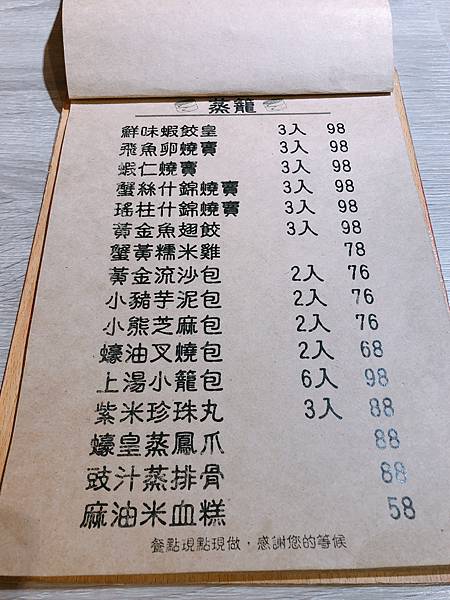 蒸籠
鮮味蝦餃皇 3入 98
飛魚卵燒賣 3入 98
蝦仁燒賣 3入 98
蟹絲什錦燒賣 3入 98
瑤柱什錦燒賣 3入 98
黃金魚翅餃 3入 98
蟹黃糯米雞 78
黃金流沙包 2入 76
小豬芋泥包 2入 76
小熊芝麻包 2入 76
蠔油叉燒包 2入 68
上湯小籠包 6入 98
紫米珍珠丸 3入 88
蠔皇蒸鳳爪 88
豉汁蒸排骨 88
麻油米血糕 58
餐點現點現做，感謝您的等候